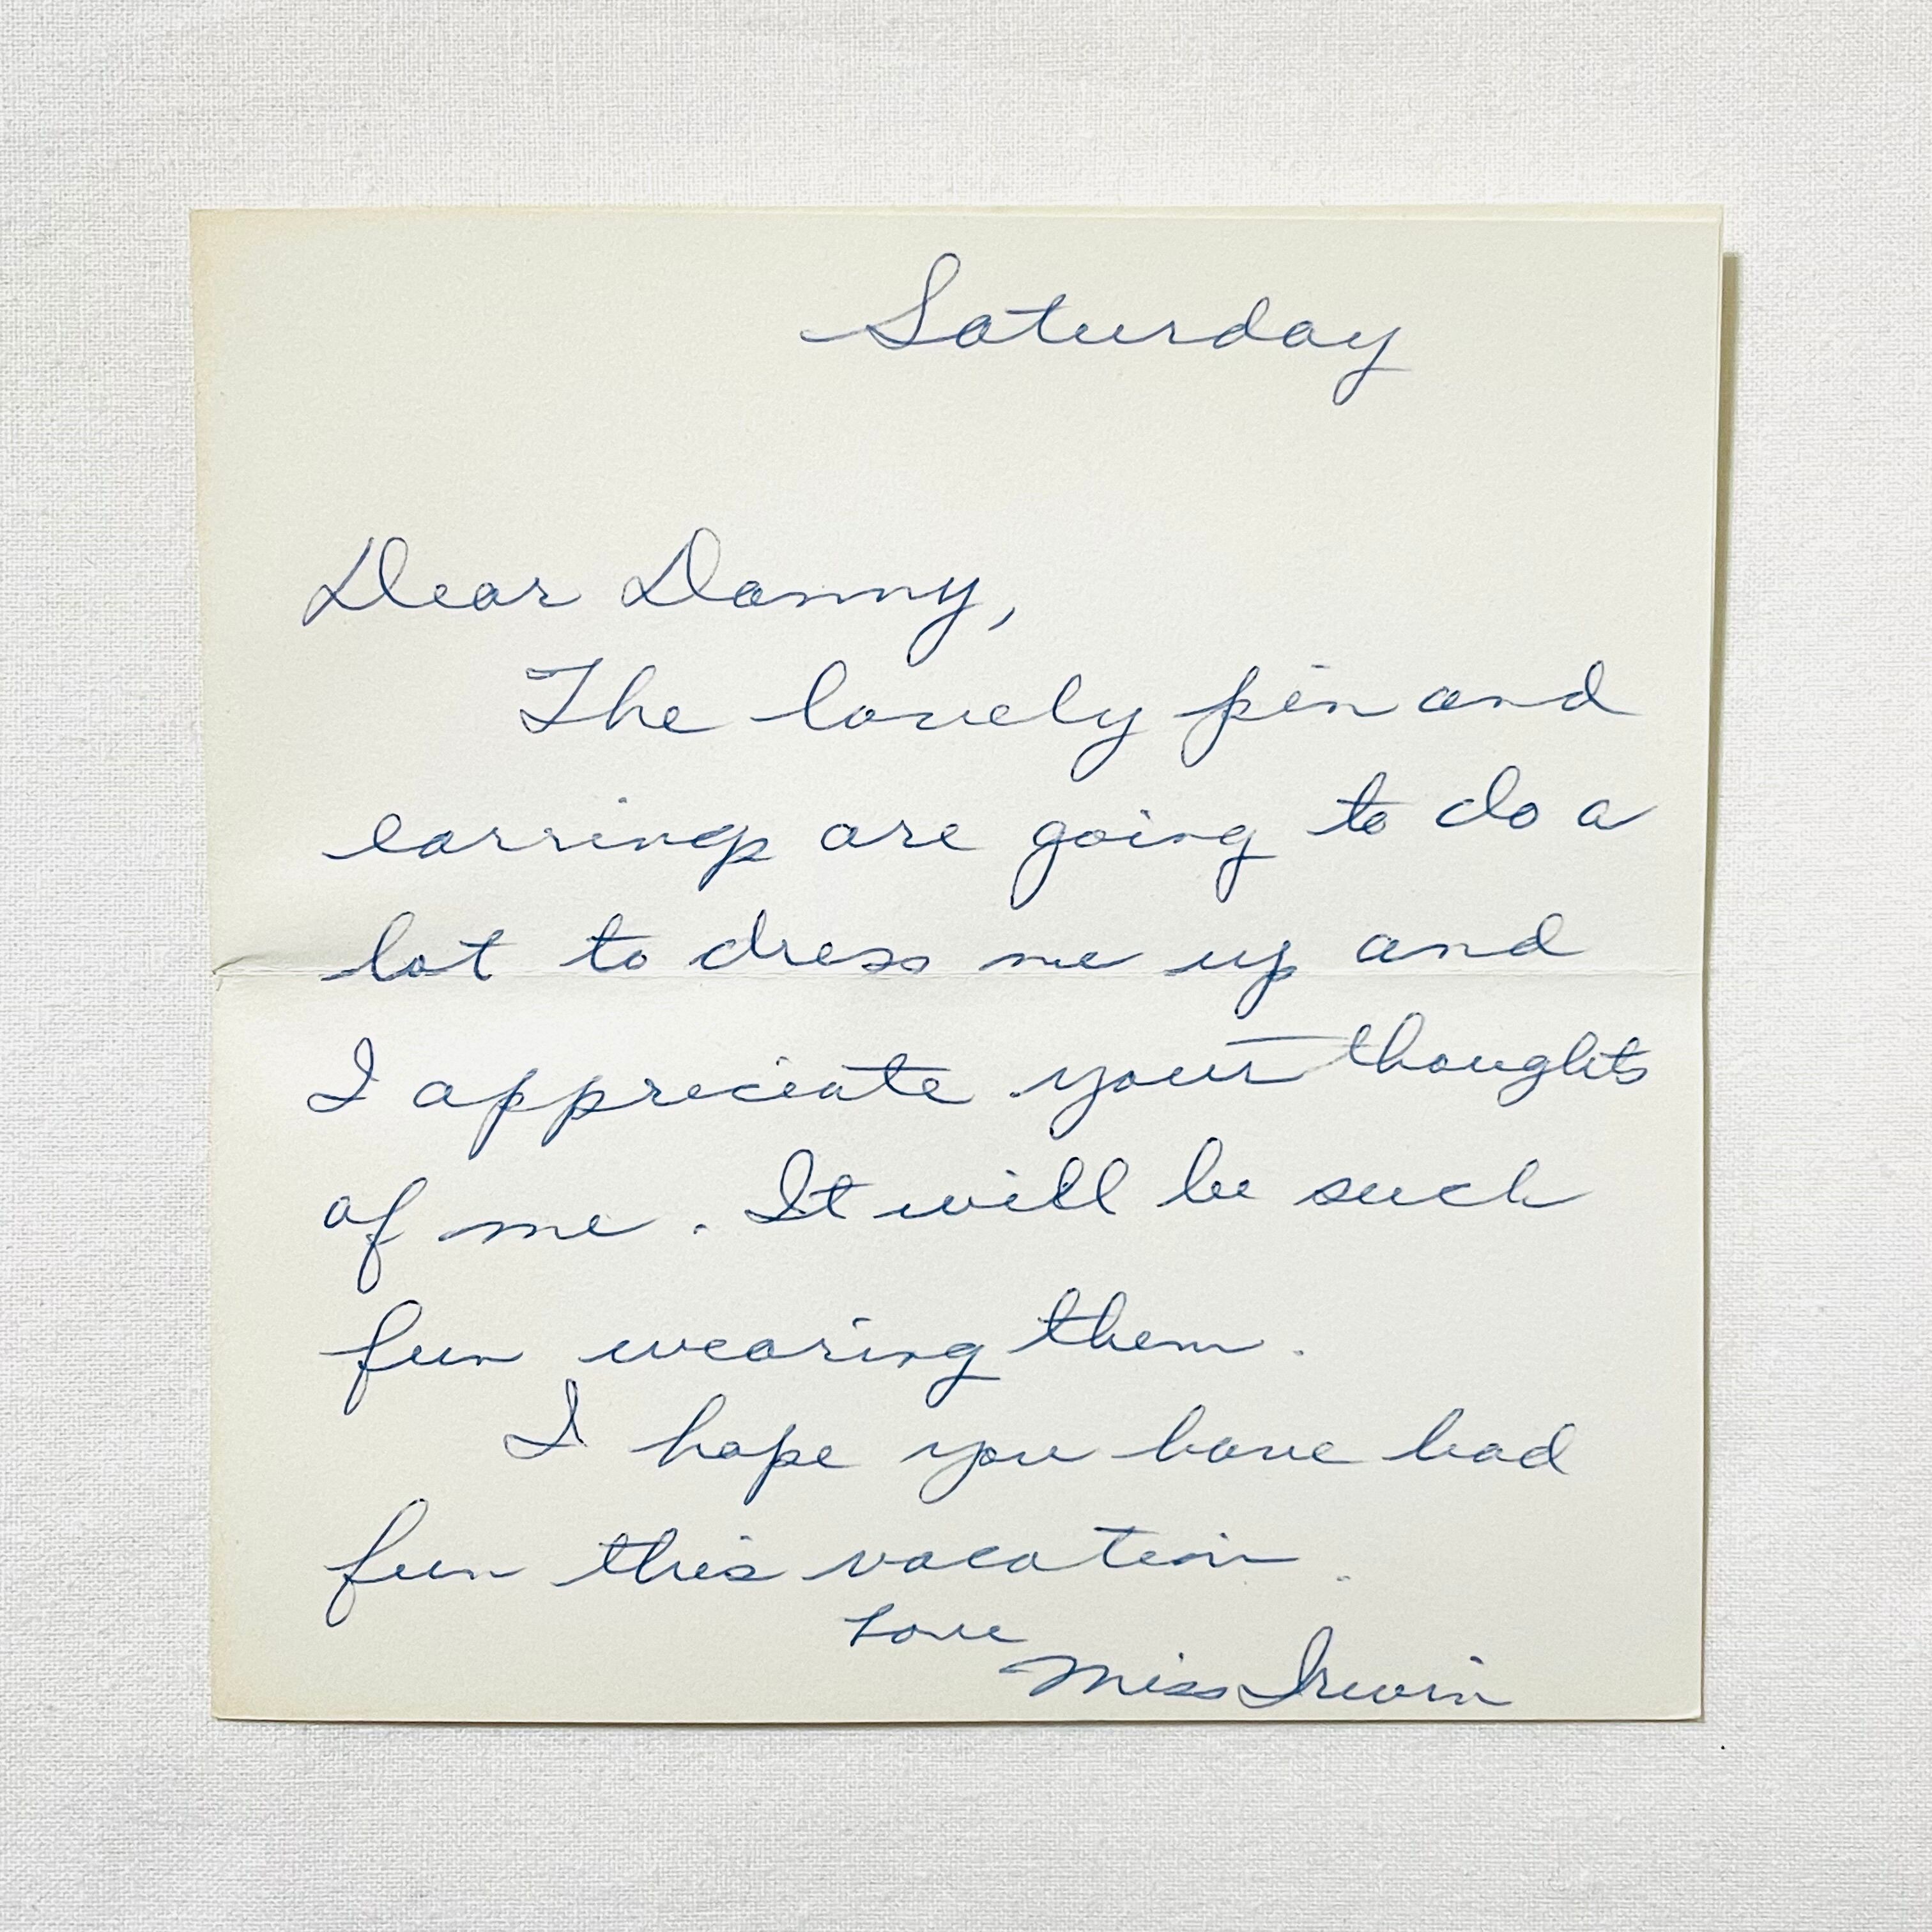 Saturday
Dear Danny,
The lovely pin and
earrings are going to do a
lot to dress me up and
I appreciate your thoughts
of me. It will be such
fun wearing them.
I hope you have had
fun this vacation.
Love
Miss Irwin